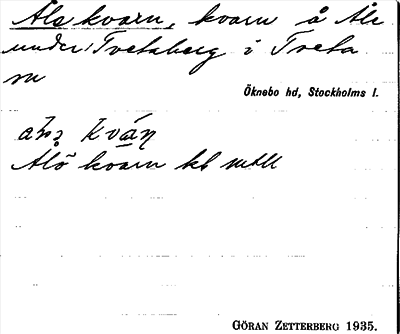 Åls kvarn, kvarn å Åle
under Tvetaberg i Tveta
sn
Öknebo hd, Stockholms l.
kván
kvarn
GÖRAN ZETTERBERG 1935.